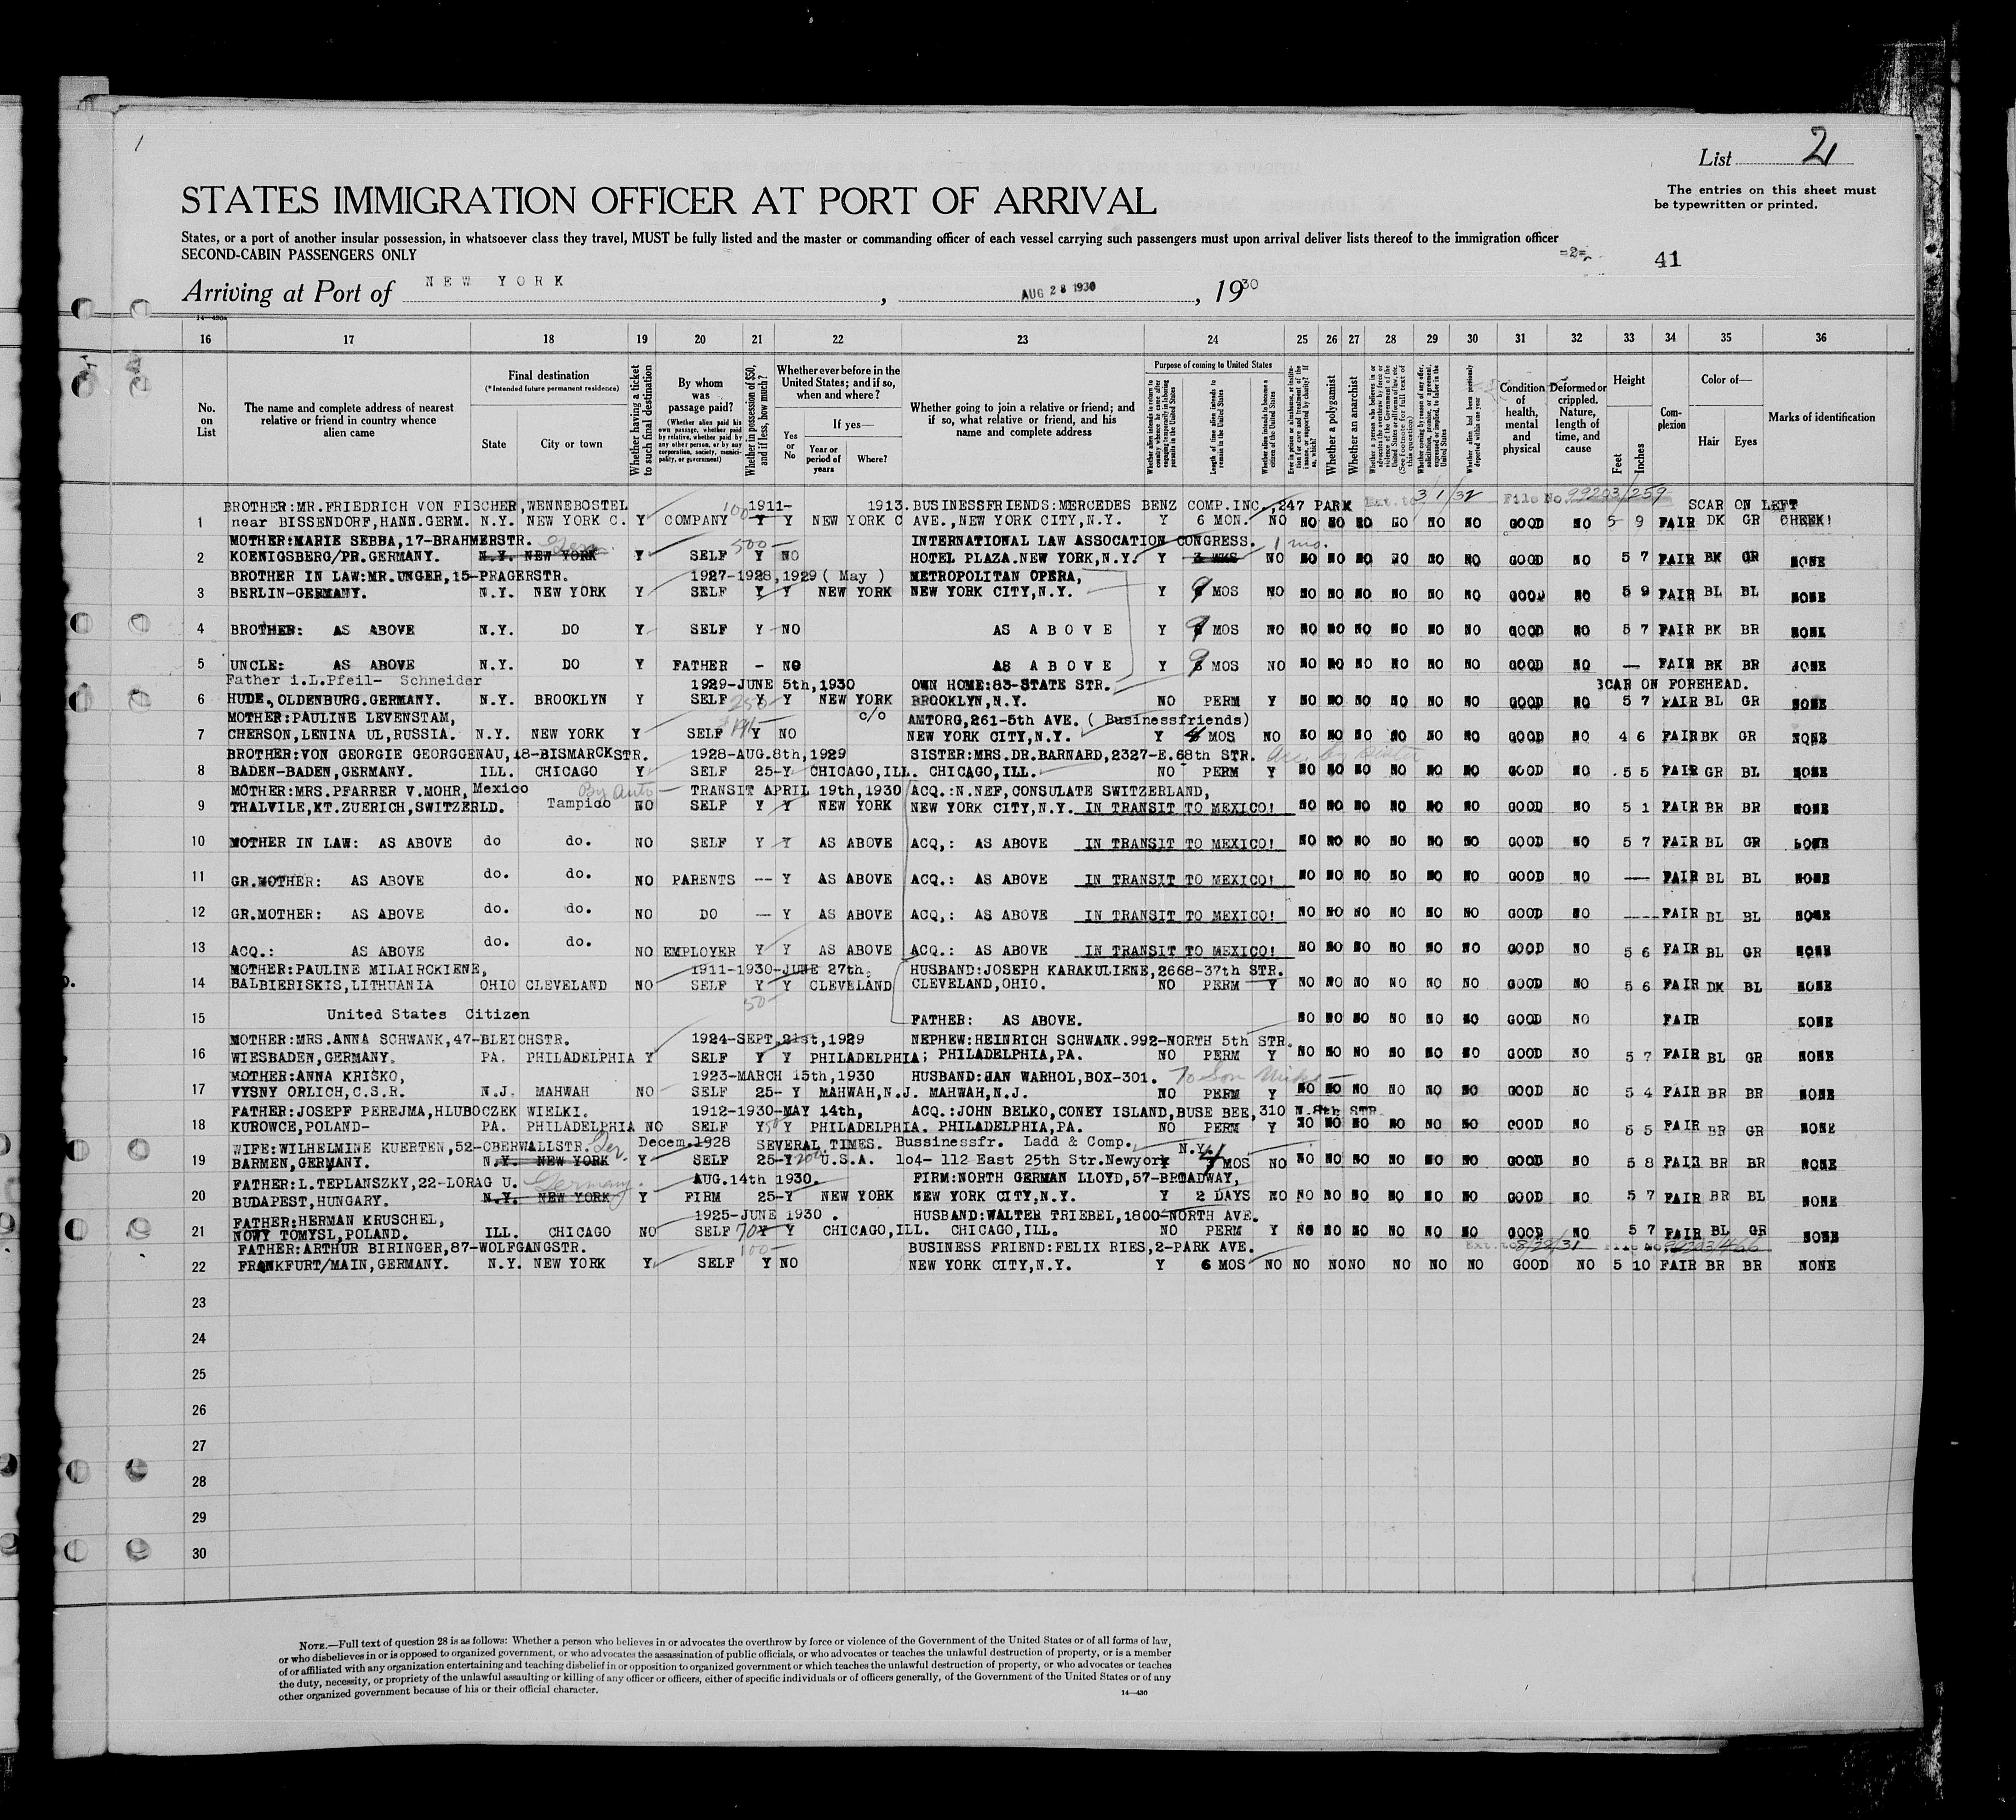 1
List 2
The entries on this sheet must
be typewritten or printed.
STATES IMMIGRATION OFFICER AT PORT OF ARRIVAL
States, or a port of another insular possession, in whatsoever class they travel, MUST be fully listed and the master or commanding officer of each vessel carrying such passengers must upon arrival deliver lists thereof to the immigration officer
SECOND-CABIN PASSENGERS ONLY
=2=
41
Arriving at Port of NEW YORK, AUG 28 1930, 1930
16 17 18 19 20 21 22 23 24 25 26 27 28 29 30 31 32 33 34 35 36
No. on List
The name and complete address of nearest relative or friend in country whence alien came
Final destination
(*Intended future permanent residence)
State
City or town
Whether having a ticket to such final destination
By whom was passage paid?
(Whether alien paid his own passage, whether paid by relative, whether paid by any other person, or by any corporation, society, municipality, or government)
Whether in possession of $50, and if less, how much?
Whether ever before in the United States; and if so, when and where?
Yes or No
If yes—
Year or period of years
Where?
Whether going to join a relative or friend; and if so, what relative or friend, and his name and complete address
Purpose of coming to United States
Length of time alien intends to remain in the United States
Whether alien intends to become a citizen of the United States
Whether a polygamist
Whether an anarchist
Condition of health, mental and physical
Deformed or crippled. Nature, length of time, and cause
Height
Feet
Inches
Complexion
Color of—
Hair
Eyes
Marks of identification
BROTHER:MR.FRIEDRICH VON FISCHER,WENNEBOSTEL 100 1911- 1913. BUSINESSFRIENDS:MERCEDES BENZ COMP.INC.,247 PARK Ext. to 3/1/32 File No. 99203/259 SCAR ON LEFT
1 near BISSENDORF,HANN.GERM. N.Y. NEW YORK C. Y COMPANY Y Y NEW YORK C AVE.,NEW YORK CITY,N.Y. Y 6 MON. NO NO NO NO NO NO NO GOOD NO 5 9 FAIR DK GR CHEEK!
MOTHER:MARIE SEBBA,17-BRAHMERSTR. 500- INTERNATIONAL LAW ASSOCATION CONGRESS. 1 mo.
2 KOENIGSBERG/PR.GERMANY. N.Y. NEW YORK Y SELF Y NO HOTEL PLAZA.NEW YORK,N.Y. Y 3 WKS NO NO NO NO NO NO NO GOOD NO 5 7 FAIR BK GR NONE
BROTHER IN LAW:MR.UNGER,15-PRAGERSTR. 1927-1928,1929 ( May ) METROPOLITAN OPERA,
3 BERLIN-GERMANY. N.Y. NEW YORK Y SELF Y Y NEW YORK NEW YORK CITY,N.Y. Y 9 MOS NO NO NO NO NO NO NO GOOD NO 5 9 FAIR BL BL NONE
4 BROTHER: AS ABOVE N.Y. DO Y SELF Y NO AS ABOVE Y 9 MOS NO NO NO NO NO NO NO GOOD NO 5 7 FAIR BK BR NONE
5 UNCLE: AS ABOVE N.Y. DO Y FATHER - NO AS ABOVE Y 9 MOS NO NO NO NO NO NO NO GOOD NO — FAIR BK BR NONE
Father i.L.Pfeil- Schneider 1929-JUNE 5th,1930 OWN HOME:83-STATE STR. SCAR ON FOREHEAD.
6 HUDE,OLDENBURG.GERMANY. N.Y. BROOKLYN Y SELF 250 Y Y NEW YORK BROOKLYN,N.Y. NO PERM Y NO NO NO NO NO NO GOOD NO 5 7 FAIR BL GR NONE
MOTHER:PAULINE LEVENSTAM, c/o AMTORG,261-5th AVE. ( Businessfriends)
7 CHERSON,LENINA UL,RUSSIA. N.Y. NEW YORK Y SELF Y NO NEW YORK CITY,N.Y. Y 4 MOS NO NO NO NO NO NO NO GOOD NO 4 6 FAIR BK GR NONE
BROTHER:VON GEORGIE GEORGGENAU,18-BISMARCKSTR. 1928-AUG.8th,1929 SISTER:MRS.DR.BARNARD,2327-E.68th STR.
8 BADEN-BADEN,GERMANY. ILL. CHICAGO Y SELF 25-Y CHICAGO,ILL. CHICAGO,ILL. NO PERM Y NO NO NO NO NO NO GOOD NO 5 5 FAIR GR BL NONE
MOTHER:MRS.PFARRER V.MOHR, Mexico By Auto TRANSIT APRIL 19th,1930 ACQ.:N.NEF,CONSULATE SWITZERLAND,
9 THALVILE,KT.ZUERICH,SWITZERLD. Tampico NO SELF Y Y NEW YORK NEW YORK CITY,N.Y. IN TRANSIT TO MEXICO! NO NO NO NO NO NO GOOD NO 5 1 FAIR BR BR NONE
10 MOTHER IN LAW: AS ABOVE do do. NO SELF Y Y AS ABOVE ACQ,: AS ABOVE IN TRANSIT TO MEXICO! NO NO NO NO NO NO GOOD NO 5 7 FAIR BL GR NONE
11 GR.MOTHER: AS ABOVE do. do. NO PARENTS -- Y AS ABOVE ACQ.: AS ABOVE IN TRANSIT TO MEXICO! NO NO NO NO NO NO GOOD NO — FAIR BL BL NONE
12 GR.MOTHER: AS ABOVE do. do. NO DO — Y AS ABOVE ACQ,: AS ABOVE IN TRANSIT TO MEXICO! NO NO NO NO NO NO GOOD NO ---- FAIR BL BL NONE
13 ACQ.: AS ABOVE do. do. NO EMPLOYER Y Y AS ABOVE ACQ.: AS ABOVE IN TRANSIT TO MEXICO! NO NO NO NO NO NO GOOD NO 5 6 FAIR BL GR NONE
MOTHER:PAULINE MILAIRCKIENE, 1911-1930-JUNE 27th. HUSBAND:JOSEPH KARAKULIENE,2668-37th STR.
14 BALBIERISKIS,LITHUANIA OHIO CLEVELAND NO SELF Y Y CLEVELAND CLEVELAND,OHIO. NO PERM Y NO NO NO NO NO NO GOOD NO 5 6 FAIR DK BL NONE
50-
15 United States Citizen FATHER: AS ABOVE. NO NO NO NO NO NO GOOD NO FAIR NONE
MOTHER:MRS.ANNA SCHWANK,47-BLEICHSTR. 1924-SEPT.21st,1929 NEPHEW:HEINRICH SCHWANK.992-NORTH 5th STR.
16 WIESBADEN,GERMANY. PA. PHILADELPHIA Y SELF Y Y PHILADELPHIA; PHILADELPHIA,PA. NO PERM Y NO NO NO NO NO NO GOOD NO 5 7 FAIR BL GR NONE
MOTHER:ANNA KRISKO, 1923-MARCH 15th,1930 HUSBAND:JAN WARHOL,BOX-301. To Son Mike
17 VYSNY ORLICH,C.S.R. N.J. MAHWAH NO SELF 25- Y MAHWAH,N.J. MAHWAH,N.J. NO PERM Y NO NO NO NO NO NO GOOD NO 5 4 FAIR BR BR NONE
FATHER:JOSEPF PEREJMA,HLUBOCZEK WIELKI. 1912-1930-MAY 14th, ACQ.:JOHN BELKO,CONEY ISLAND,BUSE BEE,310 W.8th STR.
18 KUROWCE,POLAND- PA. PHILADELPHIA NO SELF Y 50 Y PHILADELPHIA. PHILADELPHIA,PA. NO PERM Y NO NO NO NO NO NO GOOD NO 5 5 FAIR BR GR NONE
WIFE:WILHELMINE KUERTEN,52-OBERWALLSTR. Ger. Decem.1928 SEVERAL TIMES. Bussinessfr. Ladd & Comp. N.Y.
19 BARMEN,GERMANY. N.Y. NEW YORK Y SELF 25-Y 200 U.S.A. 1o4- 112 East 25th Str.Newyork Y 4 MOS NO NO NO NO NO NO NO GOOD NO 5 8 FAIR BR BR NONE
FATHER:L.TEPLANSZKY,22-LORAG U. Germany. AUG.14th 1930. FIRM:NORTH GERMAN LLOYD,57-BROADWAY,
20 BUDAPEST,HUNGARY. N.Y. NEW YORK Y FIRM 25-Y NEW YORK NEW YORK CITY,N.Y. Y 2 DAYS NO NO NO NO NO NO NO GOOD NO 5 7 FAIR BR BL NONE
FATHER:HERMAN KRUSCHEL, 1925-JUNE 1930 . HUSBAND:WALTER TRIEBEL,1800-NORTH AVE.
21 NOWY TOMYSL,POLAND. ILL. CHICAGO NO SELF 70 Y Y CHICAGO,ILL. CHICAGO,ILL. NO PERM Y NO NO NO NO NO NO GOOD NO 5 7 FAIR BL GR NONE
FATHER:ARTHUR BIRINGER,87-WOLFGANGSTR. 100- BUSINESS FRIEND:FELIX RIES,2-PARK AVE. Ext. to 8/28/31 File No.
22 FRANKFURT/MAIN,GERMANY. N.Y. NEW YORK Y SELF Y NO NEW YORK CITY,N.Y. Y 6 MOS NO NO NO NO NO NO NO GOOD NO 5 10 FAIR BR BR NONE
23
24
25
26
27
28
29
30
NOTE.—Full text of question 28 is as follows: Whether a person who believes in or advocates the overthrow by force or violence of the Government of the United States or of all forms of law,
or who disbelieves in or is opposed to organized government, or who advocates the assassination of public officials, or who advocates or teaches the unlawful destruction of property, or is a member
of or affiliated with any organization entertaining and teaching disbelief in or opposition to organized government or which teaches the unlawful destruction of property, or who advocates or teaches
the duty, necessity, or propriety of the unlawful assaulting or killing of any officer or officers, either of specific individuals or of officers generally, of the Government of the United States or of any
other organized government because of his or their official character.
14—430